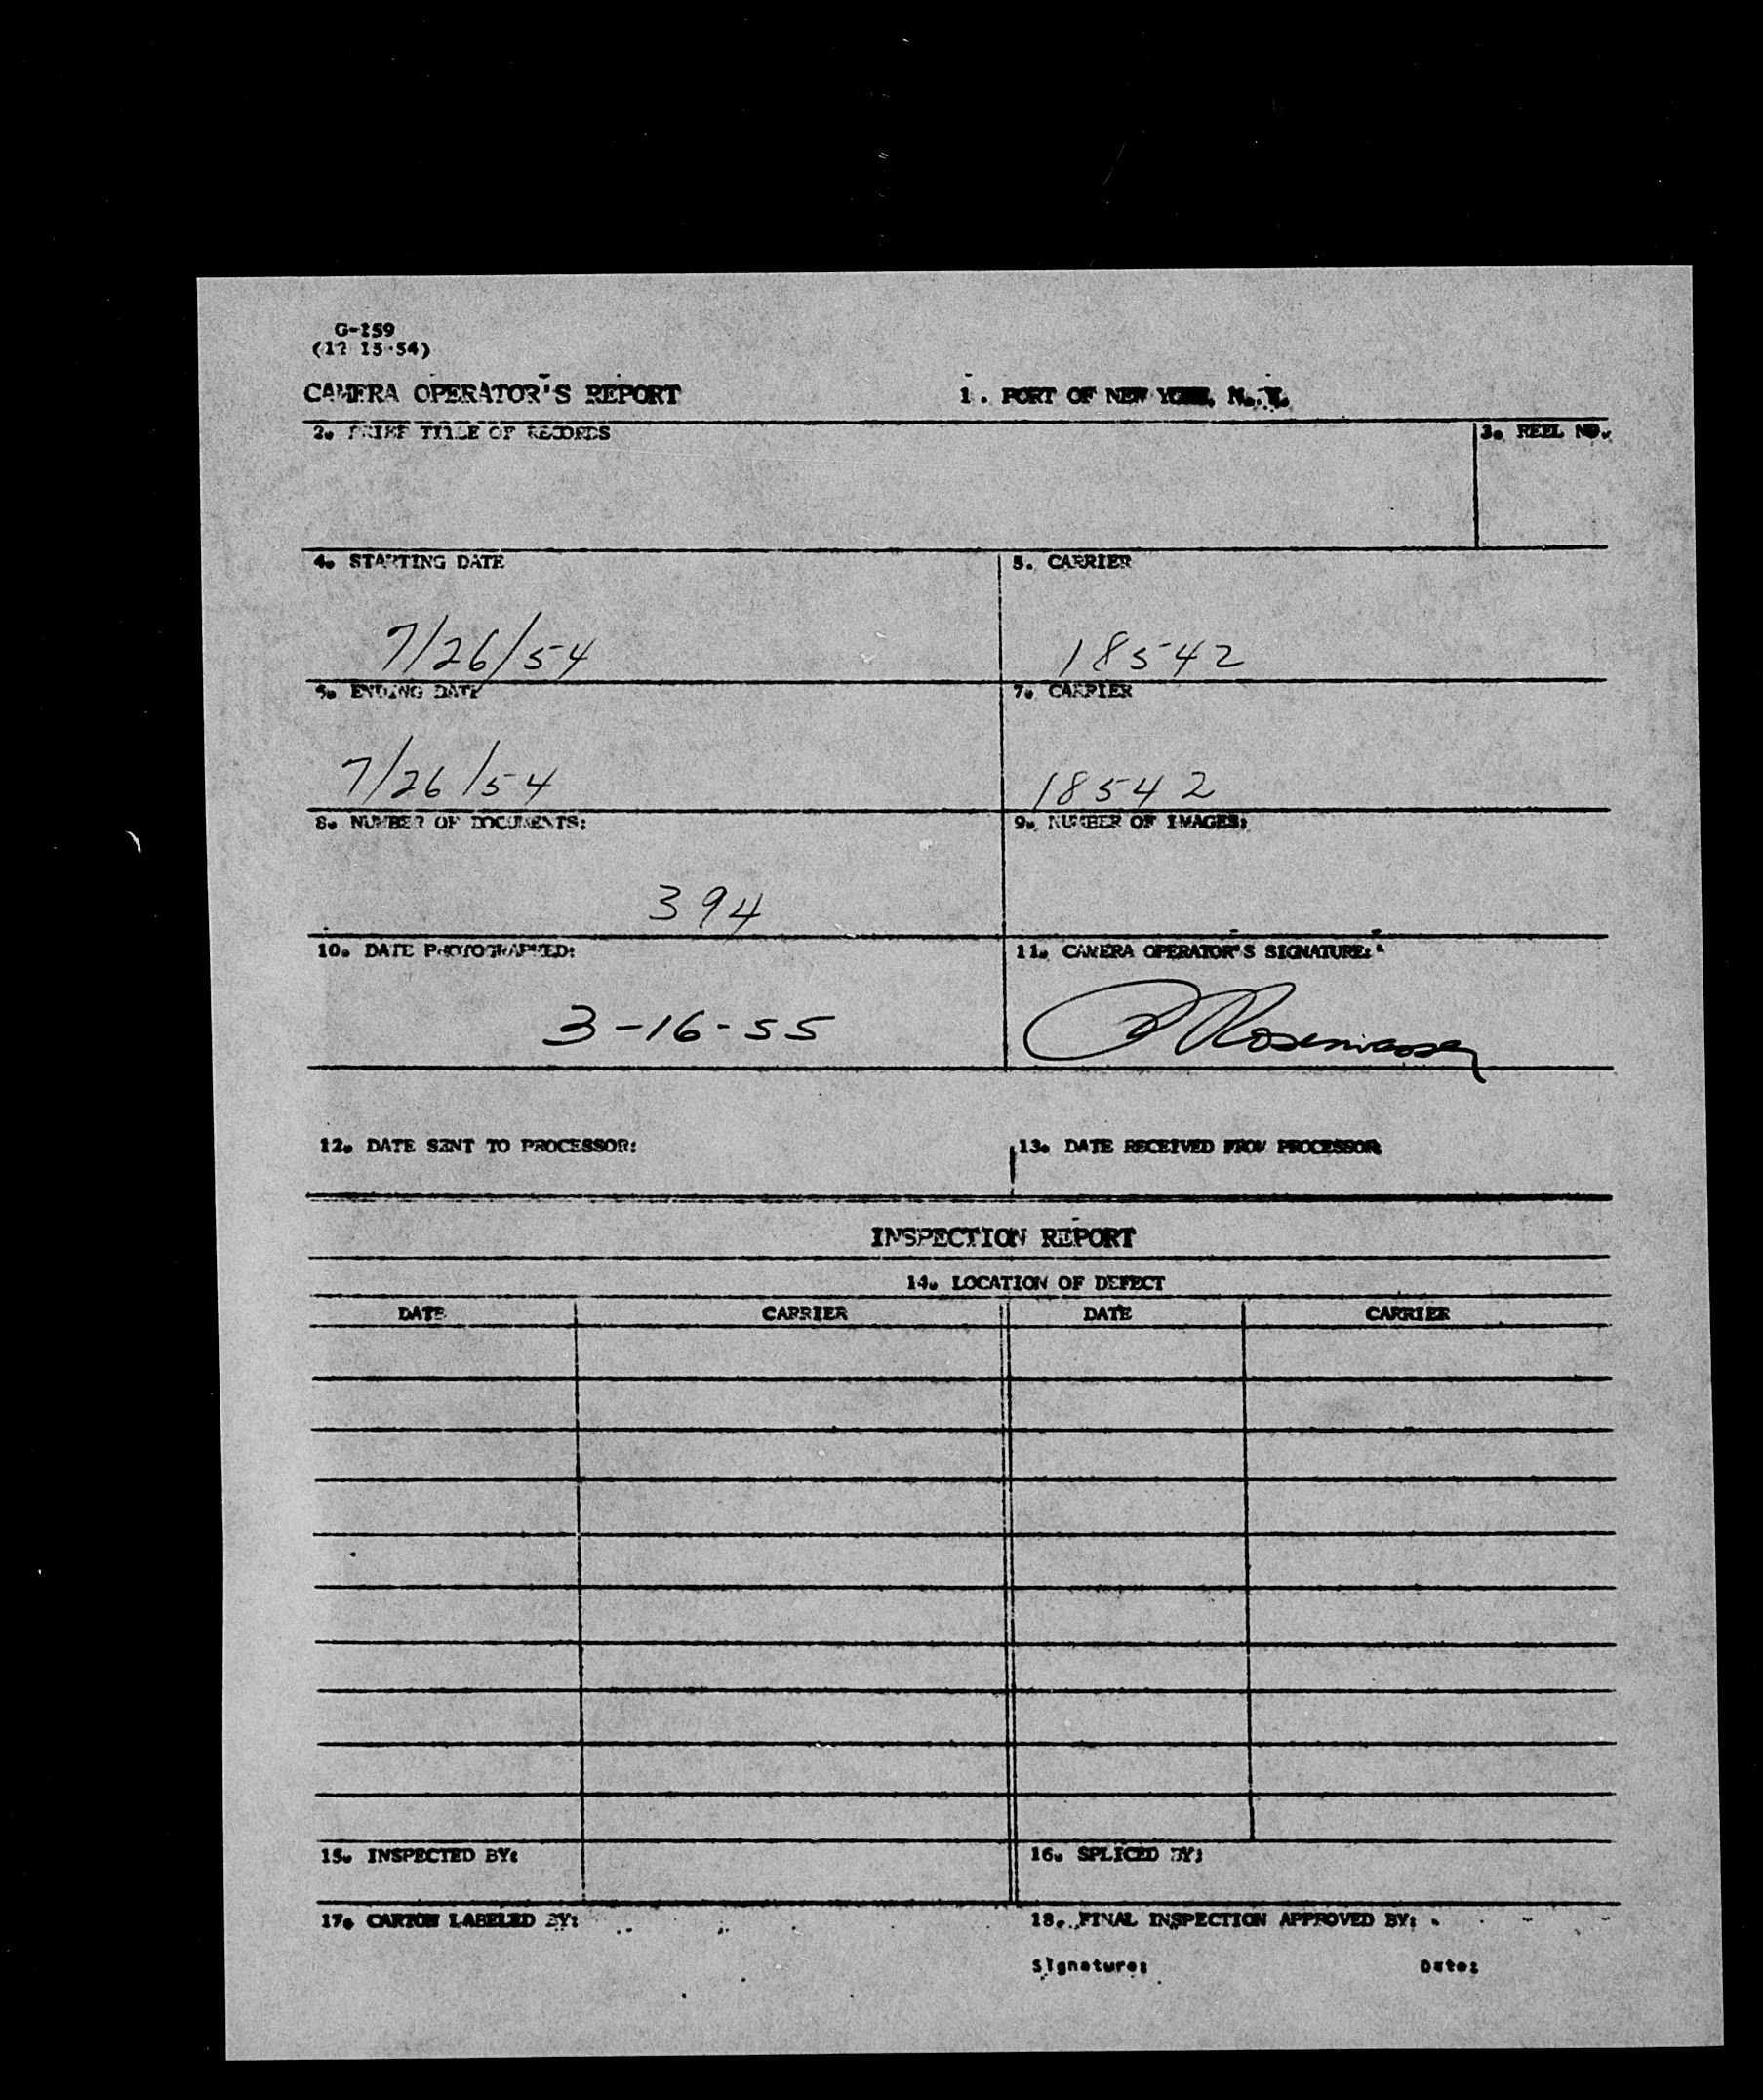 G-159
(12 15-54)
CAMERA OPERATOR'S REPORT 1. PORT OF NEW YORK, N. Y.
2. BRIEF TITLE OF RECORDS 3. REEL NO.
4. STARTING DATE 5. CARRIER
7/26/54 18542
6. ENDING DATE 7. CARRIER
7/26/54 18542
8. NUMBER OF DOCUMENTS: 9. NUMBER OF IMAGES:
394
10. DATE PHOTOGRAPHED: 11. CAMERA OPERATOR'S SIGNATURE:
3-16-55
12. DATE SENT TO PROCESSOR: 13. DATE RECEIVED FROM PROCESSOR
INSPECTION REPORT
14. LOCATION OF DEFECT
DATE CARRIER DATE CARRIER
15. INSPECTED BY: 16. SPLICED BY:
17. CARTON LABELED BY: 18. FINAL INSPECTION APPROVED BY:
Signature: Date: